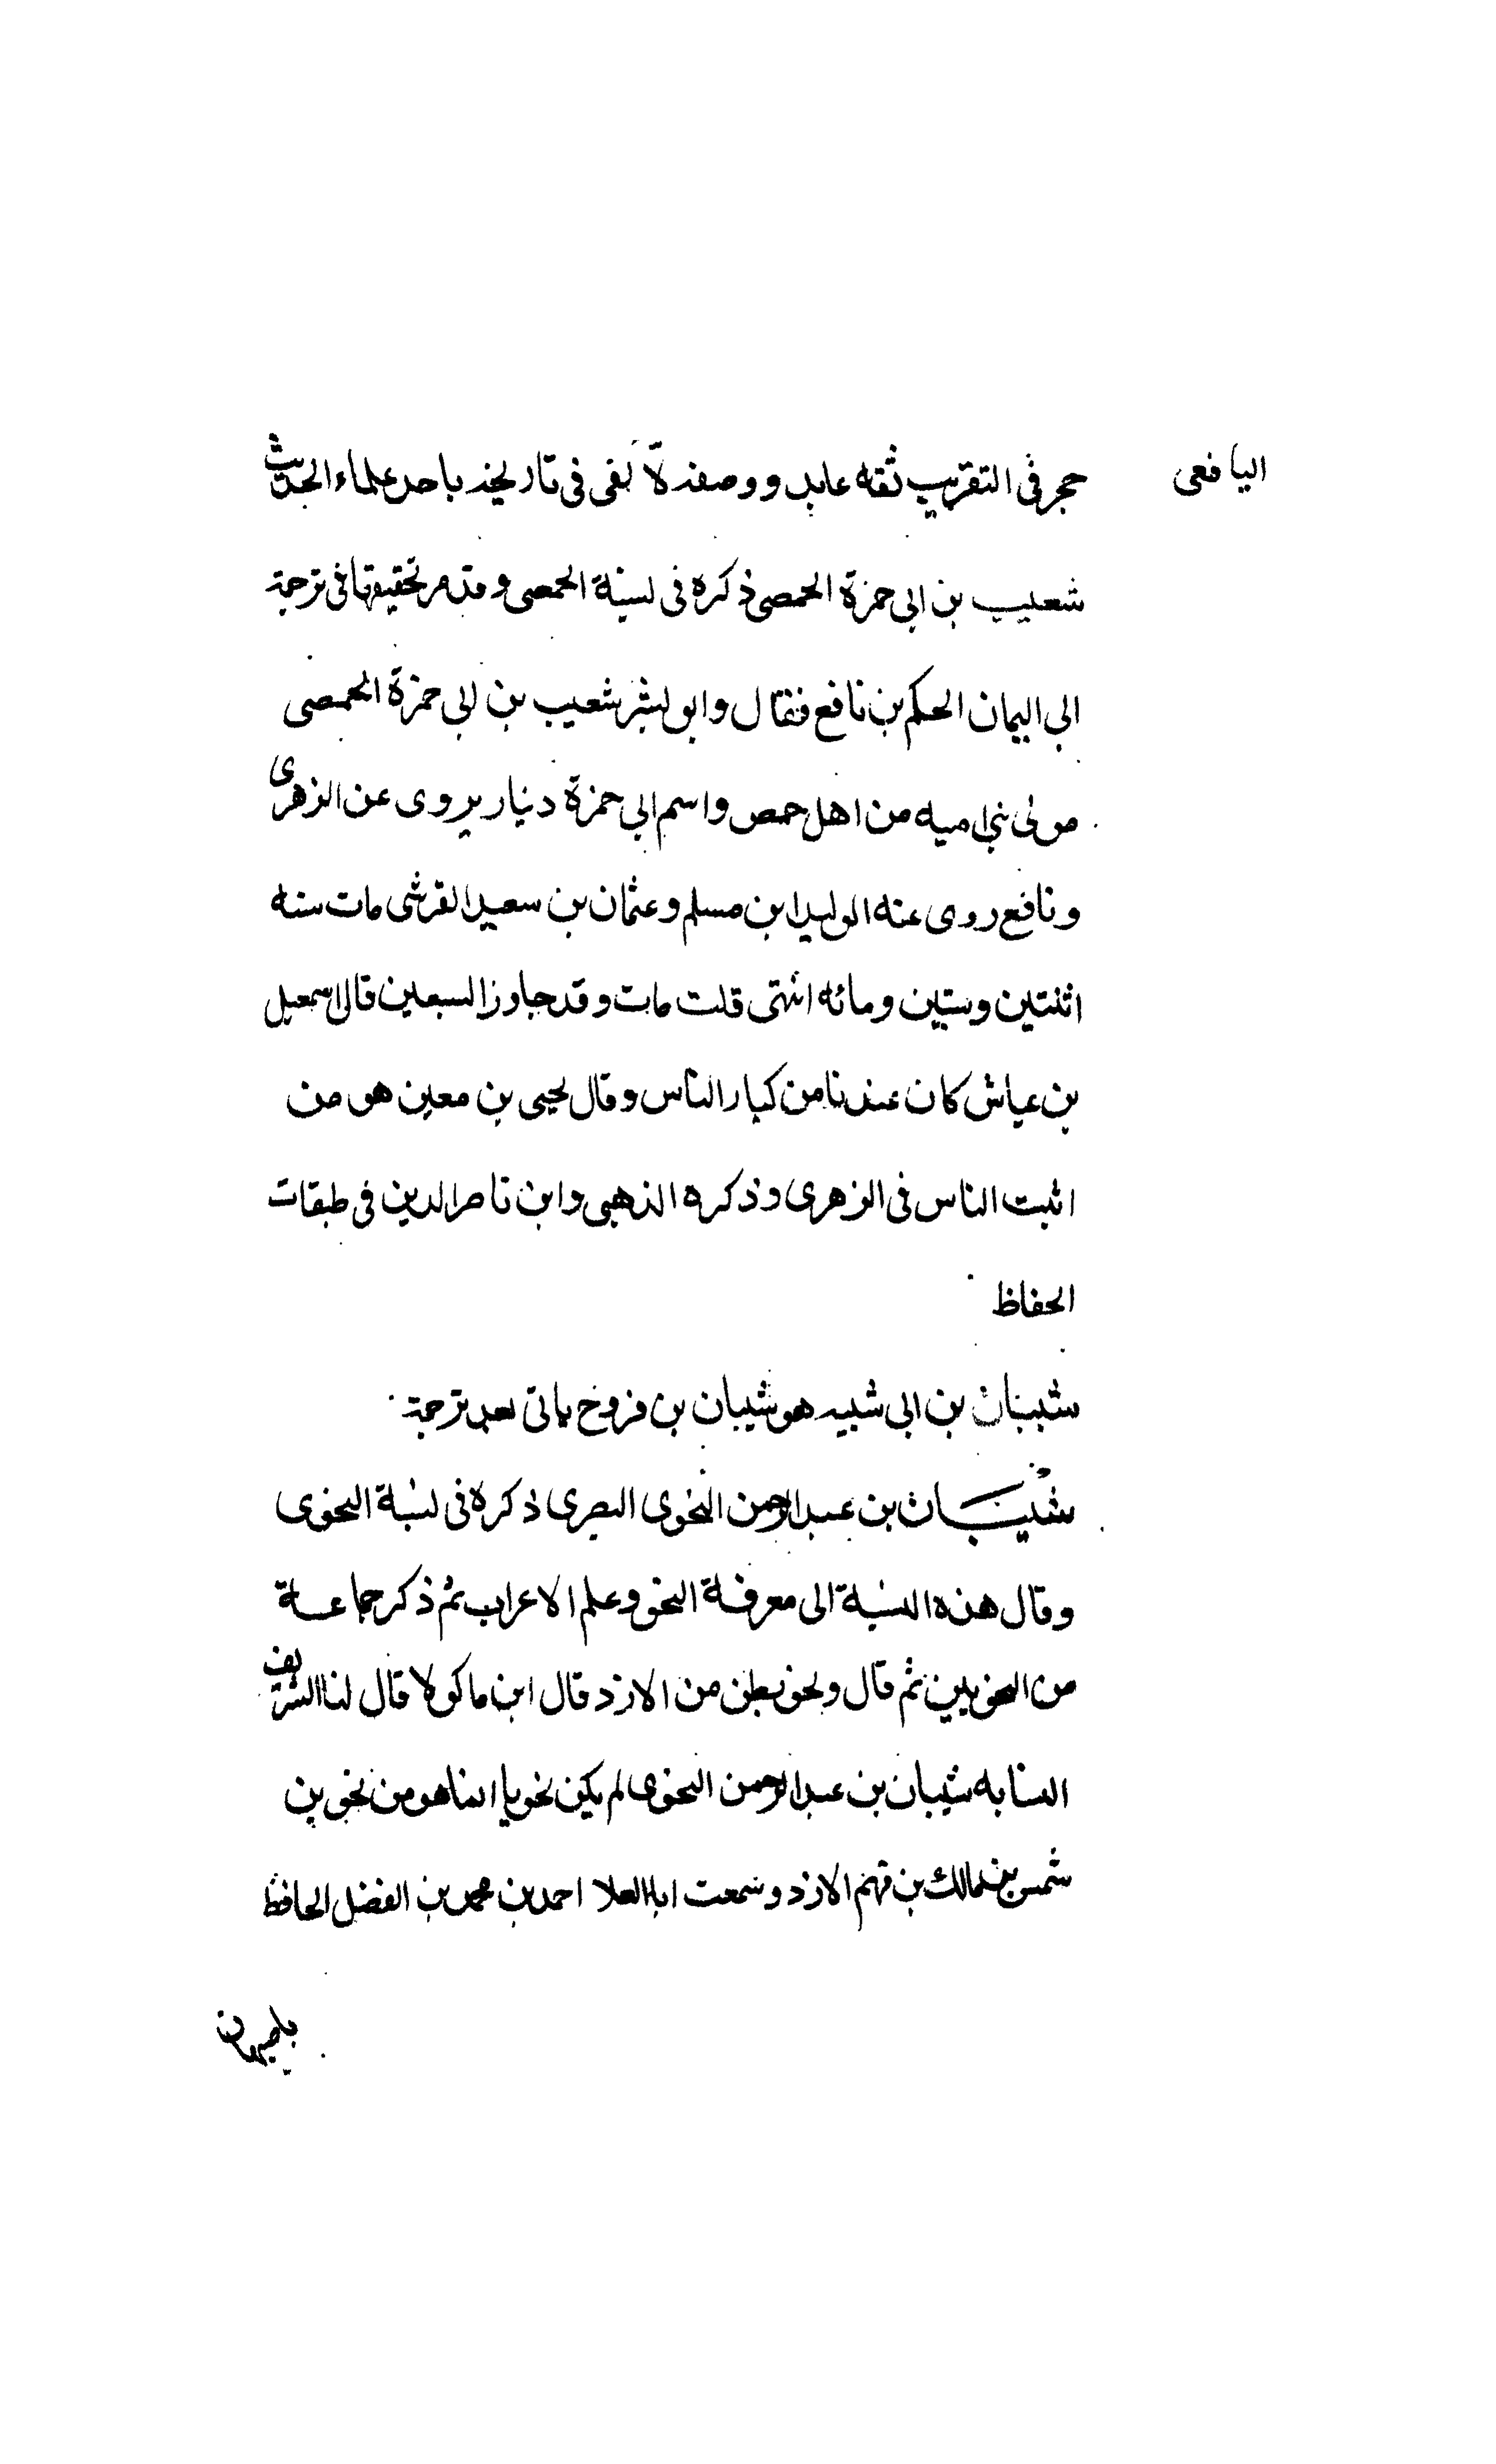 اليافعى
حجر فى التقريب ثقه عابد ووصفه لا بقى فى تاريخه باحد علماء الحديث
شعيب بن ابى حمزة الحمصى ذكره فى نسبة الحمصى وقد مر تحقيقها فى ترجمة
ابى اليمان الحكم بن نافع فقال وابو بشر شعيب بن ابى حمزة الحمصى
مولى بنى اميه من اهل حمص واسم ابى حمزة دينار يروى عن الزهرى
ونافع روى عنه الوليد ابن مسلم وعثمان بن سعيد القرشى مات سنه
اثنتين وستين ومائه انتهى قلت مات وقد جاوز السبعين قال اسمعيل
بن عياش كان عندنا من كبار الناس وقال يحيى بن معين هو من
اثبت الناس فى الزهرى وذكره الذهبى وابن ناصر الدين فى طبقات
الحفاظ
شيبان بن ابى شيبه هو شيبان بن فروخ ياتى بعد ترجمة
شيبان بن عبد الرحمن النحوى البصرى ذكره فى نسبة النحوى
وقال هذه النسبة الى معرفة النحو وعلم الاعراب ثم ذكر جماعة
من النحويين ثم قال ونحو بطن من الازد قال ابن ماكولا قال لنا الشريف
النسابه شيبان بن عبد الرحمن النحوى لم يكن نحويا انما هو من نحو بن
شمس بن مالك بن فهم الازد وسمعت ابا العلا احمد بن محمد بن الفضل الحافظ